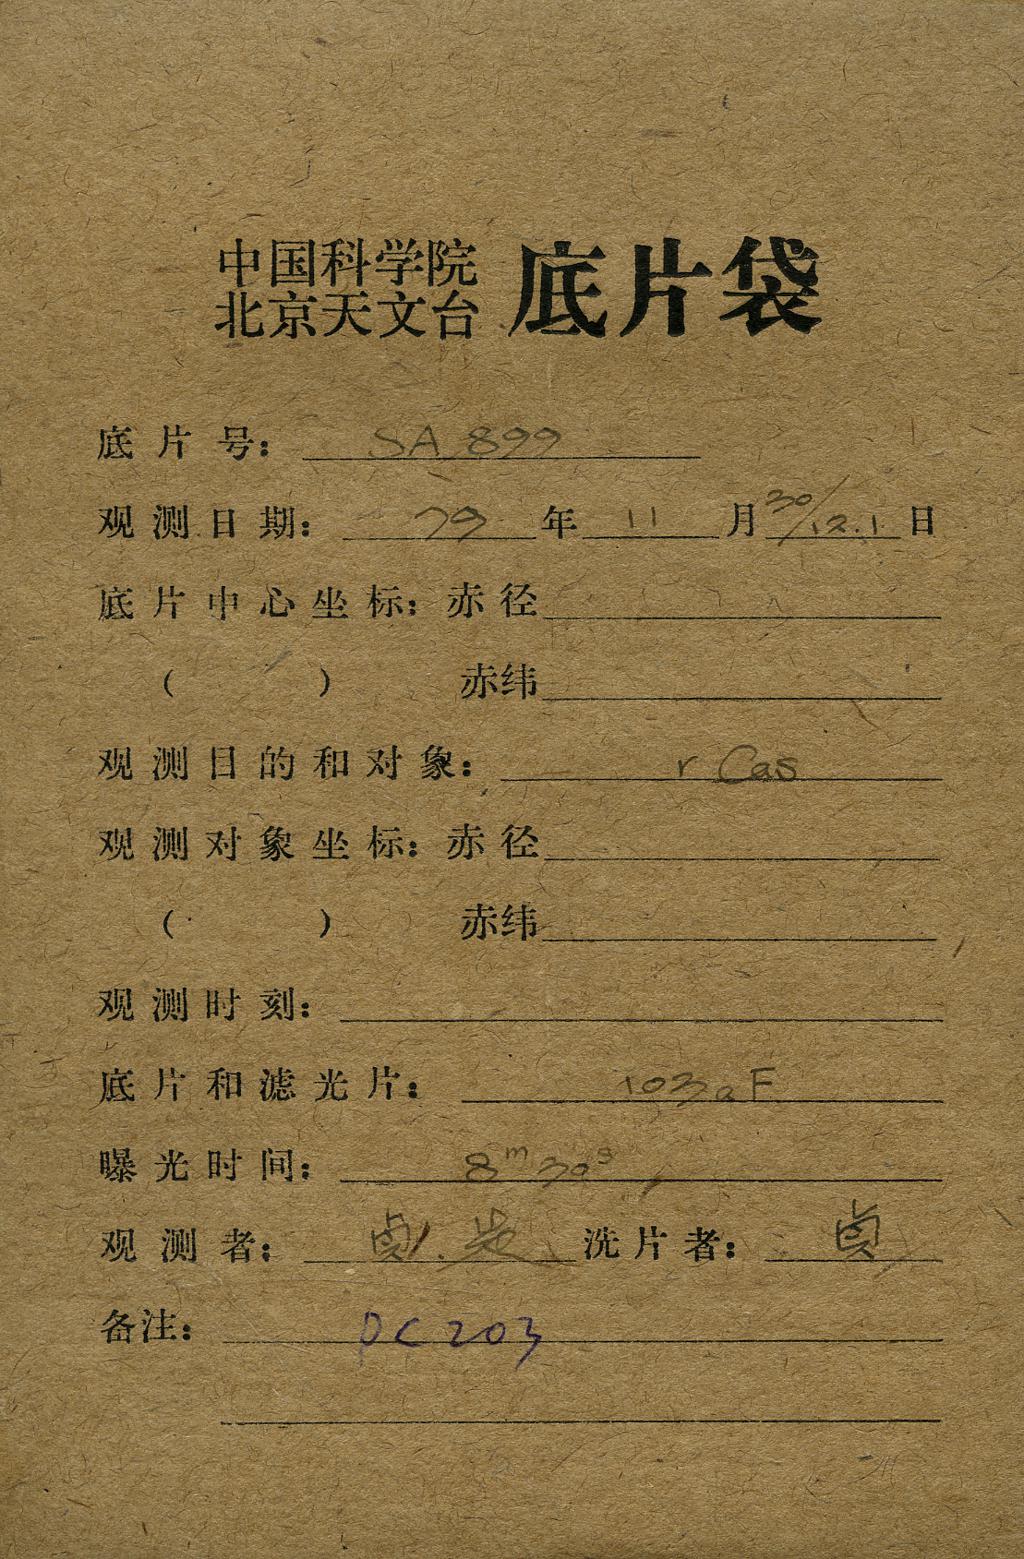 中国科学院
北京天文台 底片袋
底片号: SA 899
观测日期: 79年11月30/12.1日
底片中心坐标: 赤径
( ) 赤纬
观测目的和对象: r Cas
观测对象坐标: 赤径
( ) 赤纬
观测时刻:
底片和滤光片: 103aF
曝光时间: 8m30s
观测者: 贞. 洗片者: 贞
备注: PC203